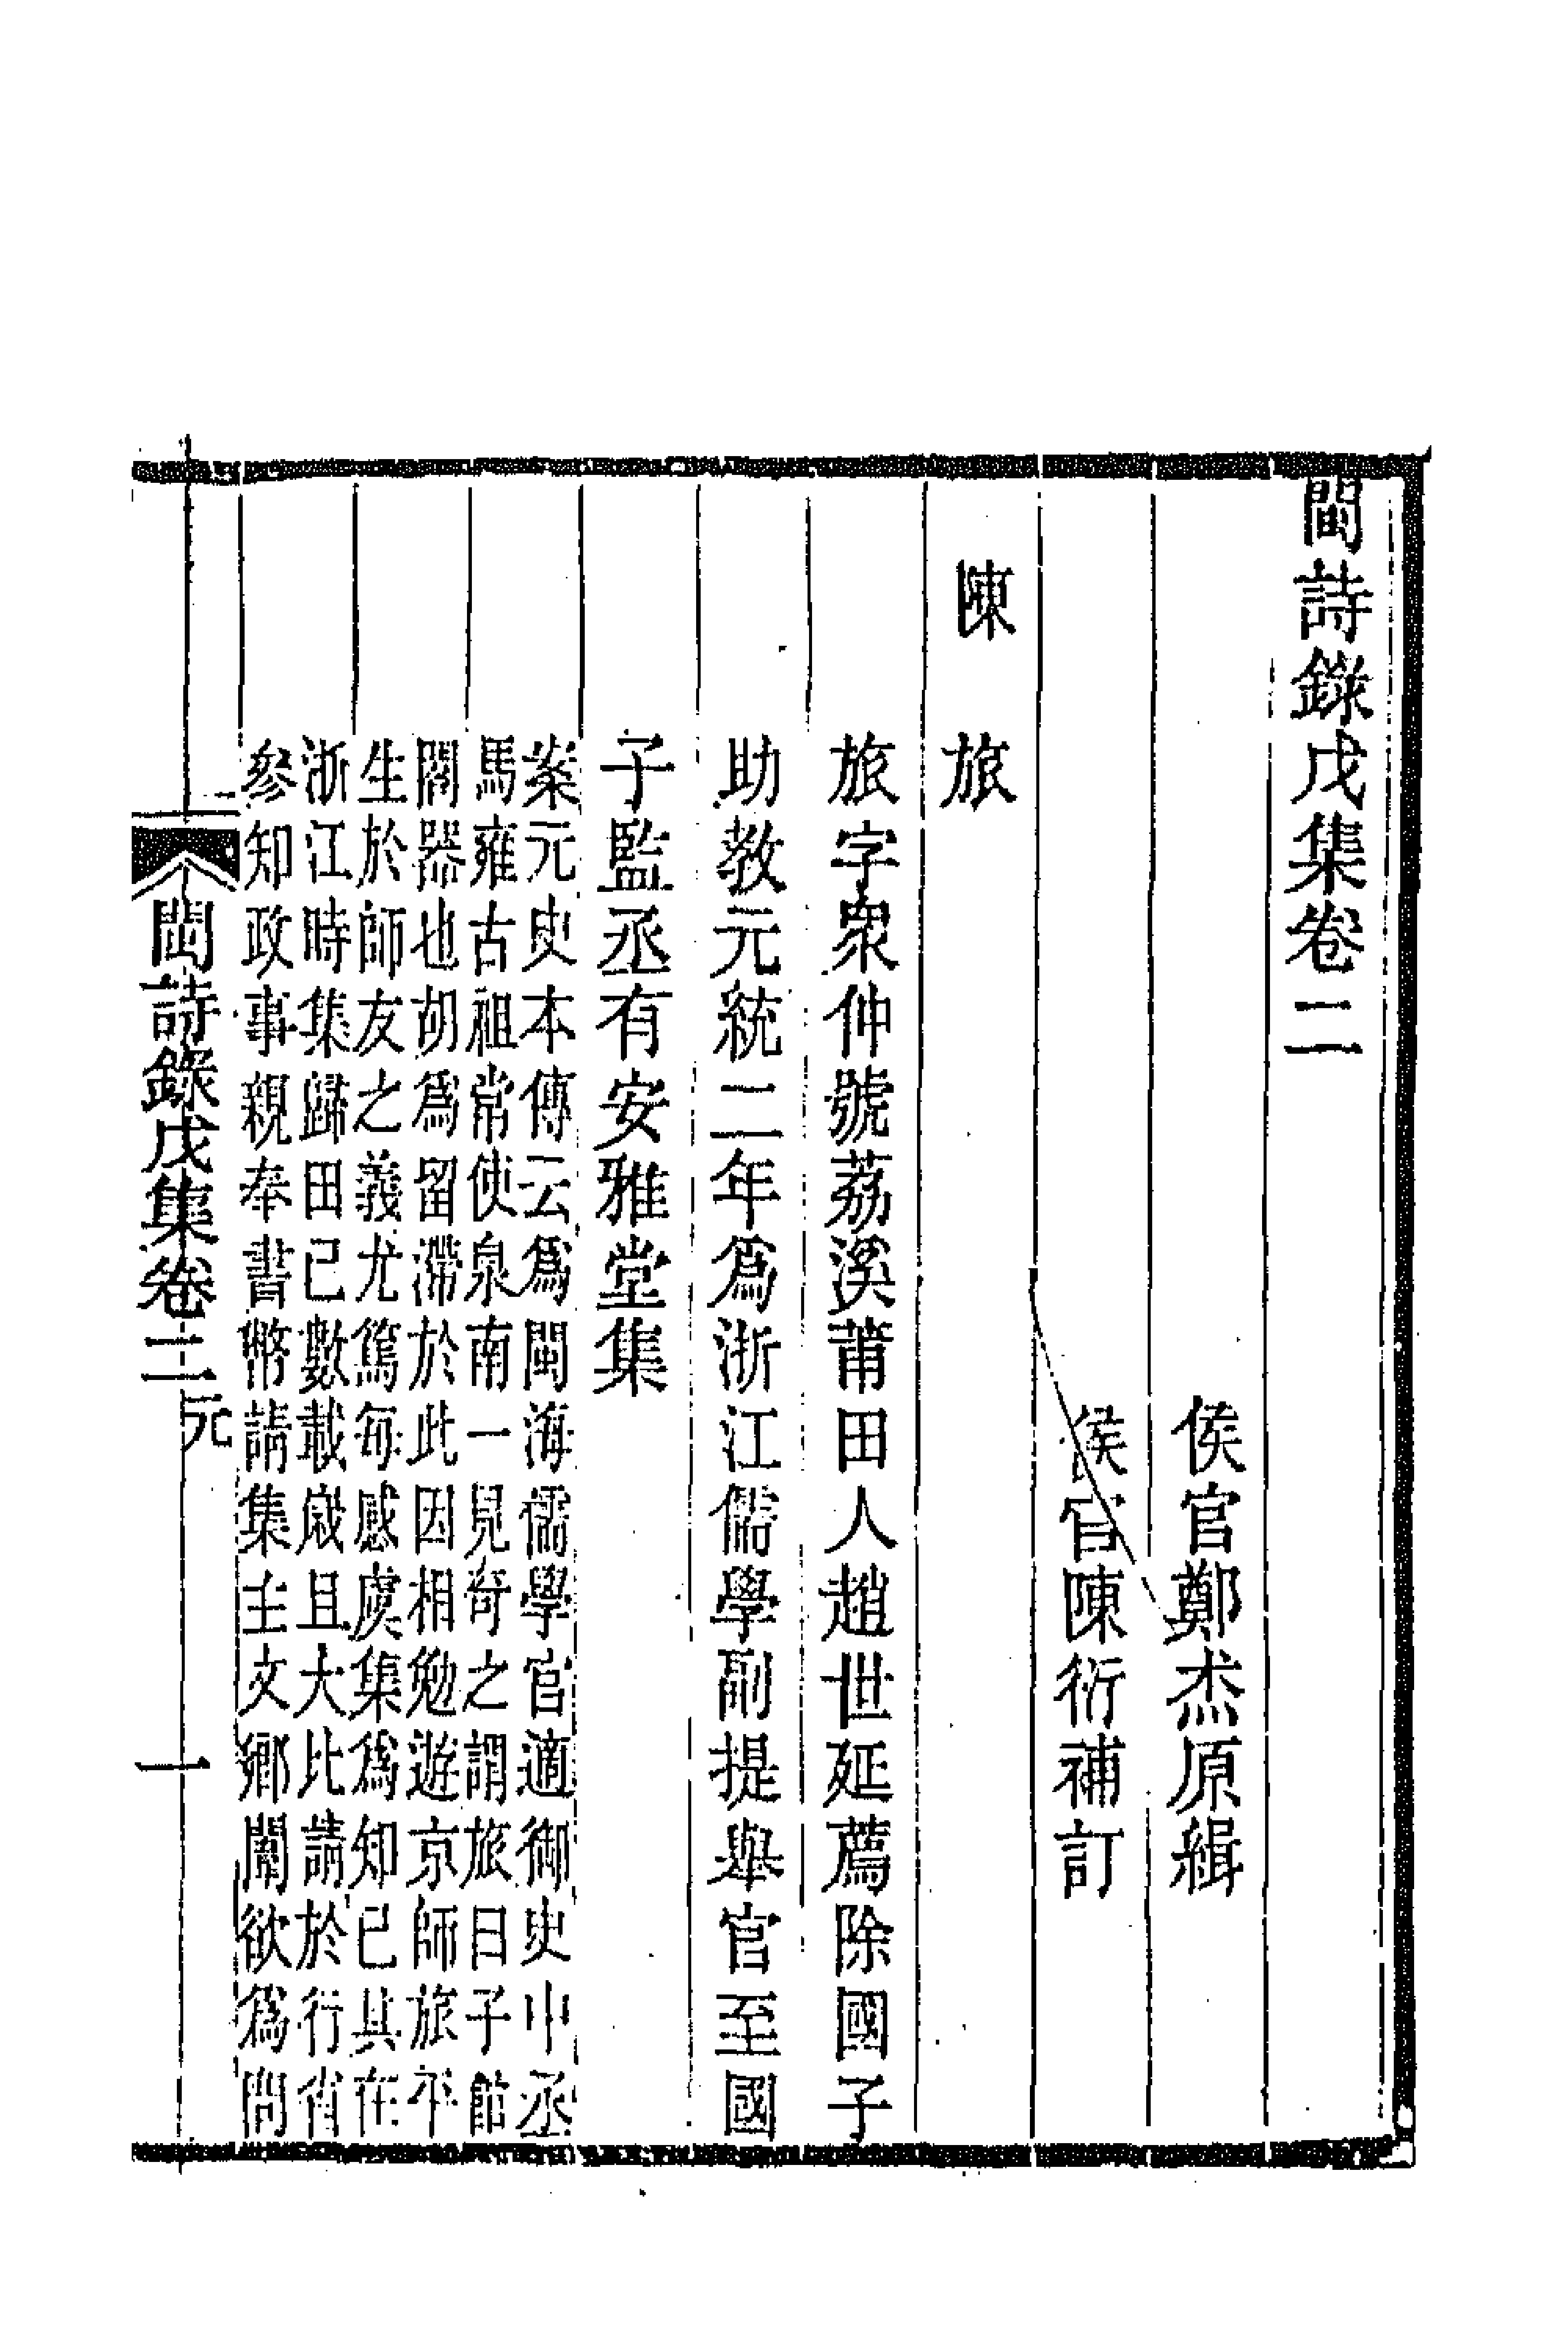 閩詩錄戊集卷二
侯官鄭杰原緝
侯官陳衍補訂
陳旅
旅字衆仲號荔溪莆田人趙世延薦除國子
助教元統二年爲浙江儒學副提舉官至國
子監丞有安雅堂集
案元史本傳云爲閩海儒學官適御史中丞
馬雍古祖常使泉南一見奇之謂旅曰子館
閣器也胡爲留滯於此因相勉遊京師旅平
生於師友之義尤篤每感虞集爲知已其在
浙江時集歸田已數載歲且大比請於行省
參知政事親奉書幣請集主文鄉闈欲爲問
閩詩錄戊集卷二 元 一